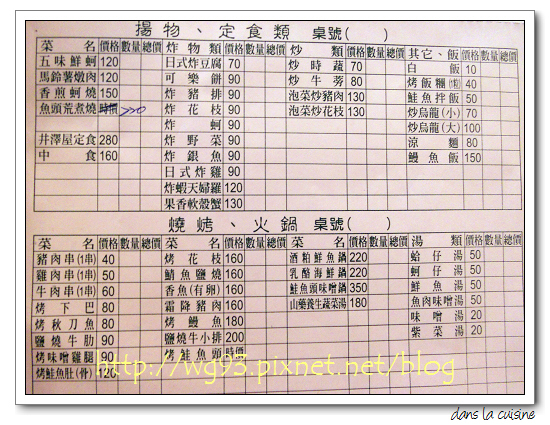 揚物、定食類 桌號( )
菜名 價格 數量 總價 炸物類 價格 數量 總價 炒類 價格 數量 總價 其它、飯 價格 數量 總價
五味鮮蚵 120 日式炸豆腐 70 炒時蔬 70 白飯 10
馬鈴薯燉肉 120 可樂餅 90 炒牛蒡 80 烤飯糰 40
香煎蚵燒 150 炸豬排 90 泡菜炒豬肉 130 鮭魚拌飯 50
魚頭荒煮燒 時價 炸花枝 90 泡菜炒花枝 130 炒烏龍(小) 70
炸蚵 90 炒烏龍(大) 100
井澤屋定食 280 炸野菜 90 涼麵 80
中食 160 炸銀魚 90 鰻魚飯 150
日式炸雞 90
炸蝦天婦羅 120
果香軟殼蟹 130
燒烤、火鍋 桌號( )
菜名 價格 數量 總價 菜名 價格 數量 總價 菜名 價格 數量 總價 湯類 價格 數量 總價
豬肉串(1串) 40 烤花枝 160 酒粕鮮魚鍋 220 蛤仔湯 50
雞肉串(1串) 50 鯖魚鹽燒 160 乳酪海鮮鍋 220 蚵仔湯 50
牛肉串(1串) 60 香魚(有卵) 160 鮭魚頭味噌鍋 350 鮮魚湯 50
烤下巴 80 霜降豬肉 160 山藥養生蔬菜湯 180 魚肉味噌湯 50
烤秋刀魚 80 烤鰻魚 180 味噌湯 20
鹽燒牛肋 90 鹽燒牛小排 200 紫菜湯 20
烤味噌雞腿 90 烤鮭魚頭 時價
烤鮭魚肚(骨) 120
http://wg93.pixnet.net/blog
dans la cuisine